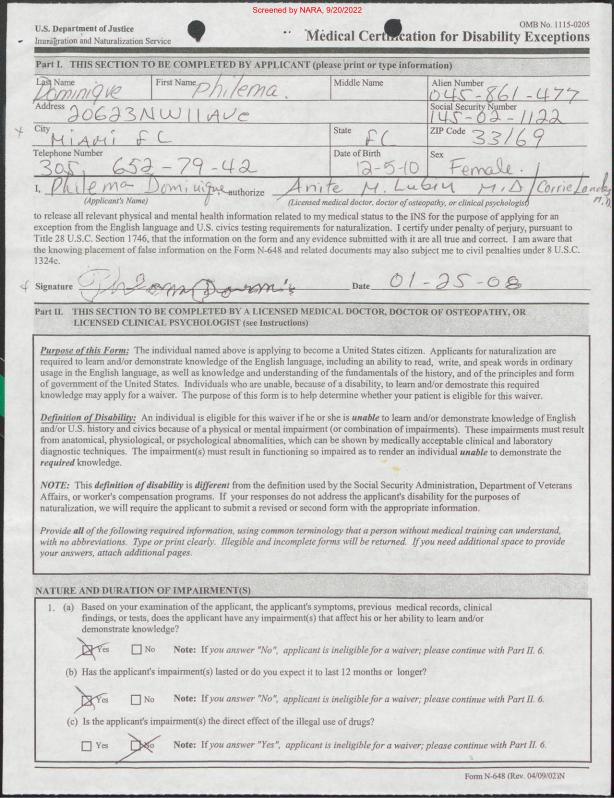 Screened by NARA, 9/20/2022
U.S. Department of Justice
Immigration and Naturalization Service
OMB No. 1115-0205
Medical Certification for Disability Exceptions
Part I. THIS SECTION TO BE COMPLETED BY APPLICANT (please print or type information)
Last Name First Name Middle Name Alien Number
Dominique Philema. 045-861-477
Address Social Security Number
20623 NW 11 AVe 145-02-1122
City State ZIP Code 33169
MIAMI FL FL
Telephone Number Date of Birth Sex
305 652-79-42 12-5-10 Female.
I, Philema Dominique authorize Anite M. Lubin M.D / Corrie M.D
(Applicant's Name) (Licensed medical doctor, doctor of osteopathy, or clinical psychologist)
to release all relevant physical and mental health information related to my medical status to the INS for the purpose of applying for an
exception from the English language and U.S. civics testing requirements for naturalization. I certify under penalty of perjury, pursuant to
Title 28 U.S.C. Section 1746, that the information on the form and any evidence submitted with it are all true and correct. I am aware that
the knowing placement of false information on the Form N-648 and related documents may also subject me to civil penalties under 8 U.S.C.
1324c.
Signature Date 01-25-08
Part II. THIS SECTION TO BE COMPLETED BY A LICENSED MEDICAL DOCTOR, DOCTOR OF OSTEOPATHY, OR
LICENSED CLINICAL PSYCHOLOGIST (see Instructions)
Purpose of this Form: The individual named above is applying to become a United States citizen. Applicants for naturalization are
required to learn and/or demonstrate knowledge of the English language, including an ability to read, write, and speak words in ordinary
usage in the English language, as well as knowledge and understanding of the fundamentals of the history, and of the principles and form
of government of the United States. Individuals who are unable, because of a disability, to learn and/or demostrate this required
knowledge may apply for a waiver. The purpose of this form is to help determine whether your patient is eligible for this waiver.
Definition of Disability: An individual is eligible for this waiver if he or she is unable to learn and/or demonstrate knowledge of English
and/or U.S. history and civics because of a physical or mental impairment (or combination of impairments). These impairments must result
from anatomical, physiological, or psychological abnomalities, which can be shown by medically acceptable clinical and laboratory
diagnostic techniques. The impairment(s) must result in functioning so impaired as to render an individual unable to demonstrate the
required knowledge.
NOTE: This definition of disability is different from the definition used by the Social Security Administration, Department of Veterans
Affairs, or worker's compensation programs. If your responses do not address the applicant's disability for the purposes of
naturalization, we will require the applicant to submit a revised or second form with the appropriate information.
Provide all of the following required information, using common terminology that a person without medical training can understand,
with no abbreviations. Type or print clearly. Illegible and incomplete forms will be returned. If you need additional space to provide
your answers, attach additional pages.
NATURE AND DURATION OF IMPAIRMENT(S)
1. (a) Based on your examination of the applicant, the applicant's symptoms, previous medical records, clinical
findings, or tests, does the applicant have any impairment(s) that affect his or her ability to learn and/or
demonstrate knowledge?
Yes No Note: If you answer "No", applicant is ineligible for a waiver; please continue with Part II. 6.
(b) Has the applicant's impairment(s) lasted or do you expect it to last 12 months or longer?
Yes No Note: If you answer "No", applicant is ineligible for a waiver; please continue with Part II. 6.
(c) Is the applicant's impairment(s) the direct effect of the illegal use of drugs?
Yes No Note: If you answer "Yes", applicant is ineligible for a waiver; please continue with Part II. 6.
Form N-648 (Rev. 04/09/02)N